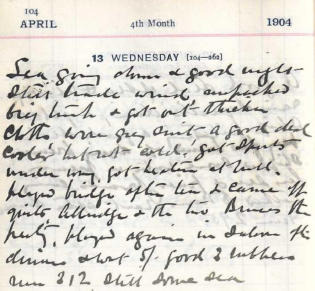 104
APRIL 4th Month 1904
13 WEDNESDAY [104—262]
Sea going down & good night
Still trade wind, unpacked
big trunk & got out thicker
clothes wore grey suit a good deal
cooler but not cold. got Sports
under way, got beaten at bull.
played bridge after tea & came off
quits, & the two Bruces the
party, played again in Saloon after
dinner & lost 5/. good 3 rubbers
run 312 Still some sea